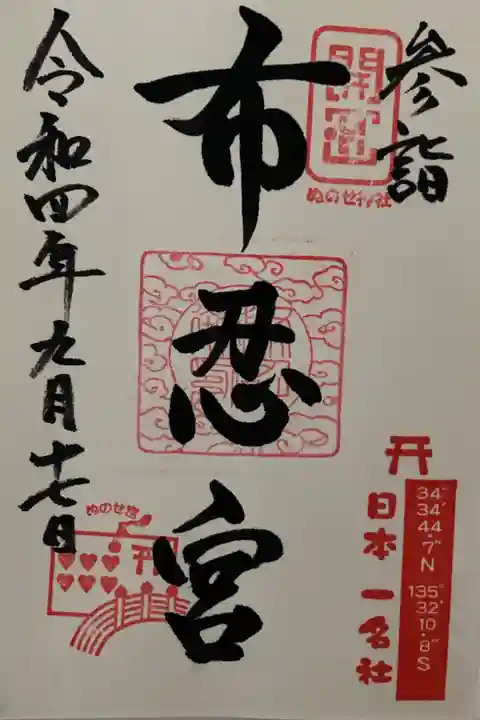 参詣
開運
ぬのせ神社
布忍宮
令和四年九月十七日
ぬのせ宮
開
日本一名社
34°
34′
44
.7″
N
135°
32′
10
.8″
S